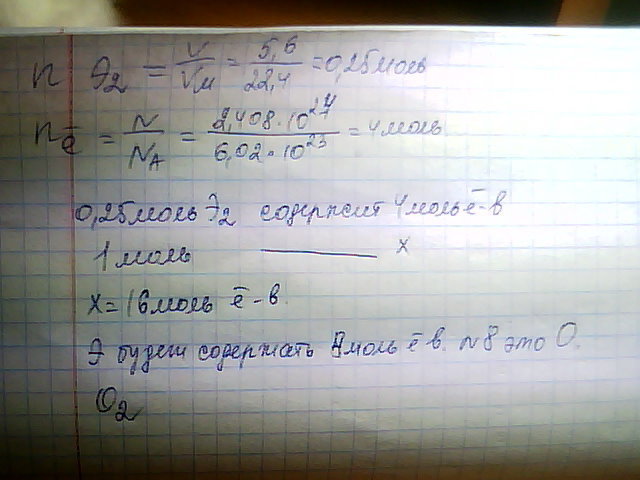 n Э2 = V/Vм = 5,6/22,4 = 0,25моль
nē = N/NA = 2,408·10^24/6,02·10^23 = 4моль
0,25моль Э2 содержит 4моль ē-в
1моль —— x
x=16моль ē-в.
Э будет содержать 8моль ē в. №8 это O.
O2